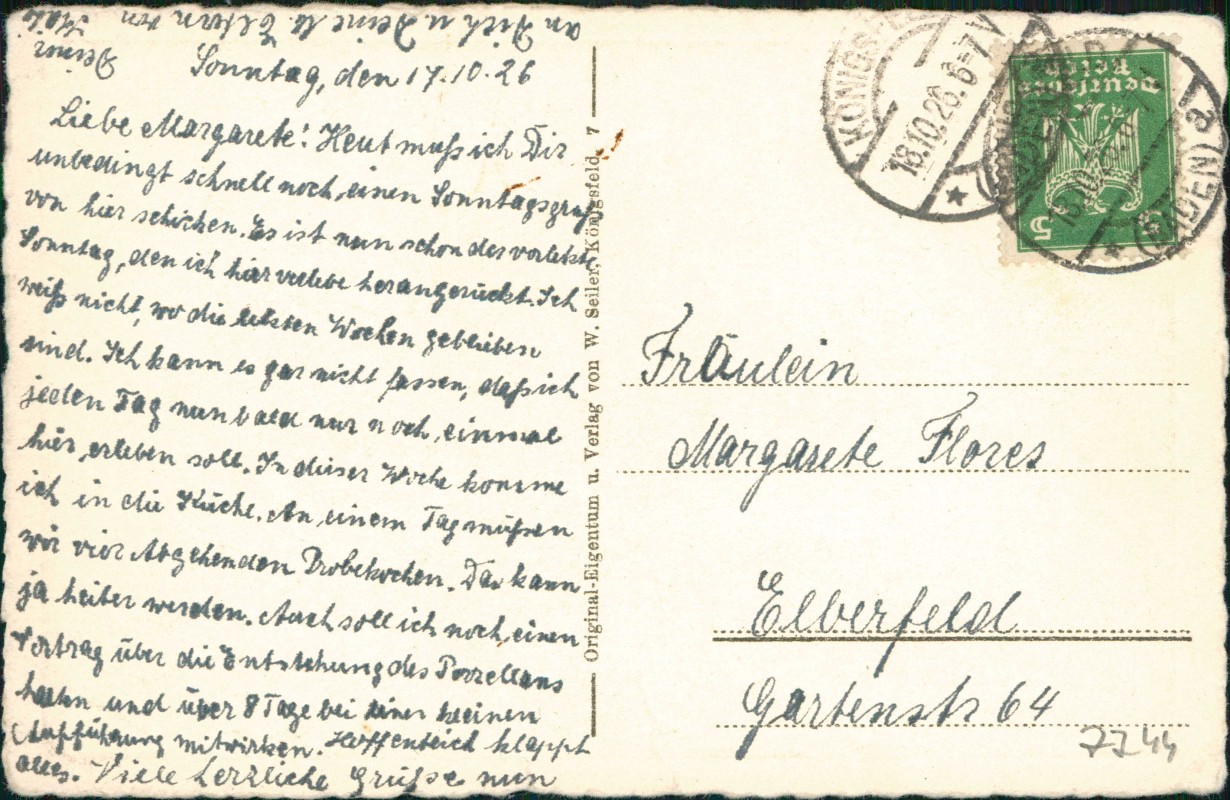 Sonntag, den 17.10.26
Liebe Margarete! Heut muß ich Dir
unbedingt schnell noch einen Sonntagsgruß
von hier schicken. Es ist nun schon der vorletzte
Sonntag, den ich hier verlebe herangerückt. Ich
weiß nicht, wo die letzten Wochen geblieben
sind. Ich kann es gar nicht fassen, daß ich
jeden Tag nun bald nur noch einmal
hier erleben soll. In dieser Woche komme
ich in die Küche. An einem Tag müssen
wir vier Abgehenden Probekochen. Das kann
ja heiter werden. Auch soll ich noch einen
Vortrag über die Entstehung des Porzellans
halten und über 8 Tage bei einer kleinen
Aufführung mitwirken. Hoffentlich klappt
alles. Viele herzliche Grüße nun
an Dich u. Deine lb. Eltern von
Deiner
Original-Eigentum u. Verlag von W. Seiler, Königsfeld. 7
KÖNIGS
18.10.26.6-7
(BADEN) a
Deutsches
Reich
5
Fräulein
Margarete Flores
Elberfeld
Gartenstr 64
7744